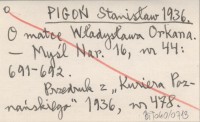 PIGOŃ Stanisław 1936.
O matce Władysława Orkana.
— Myśl Nar. 16, nr 44:
691-692.
Przedruk z „Kuriera Poz-
nańskiego" 1936, nr 475.